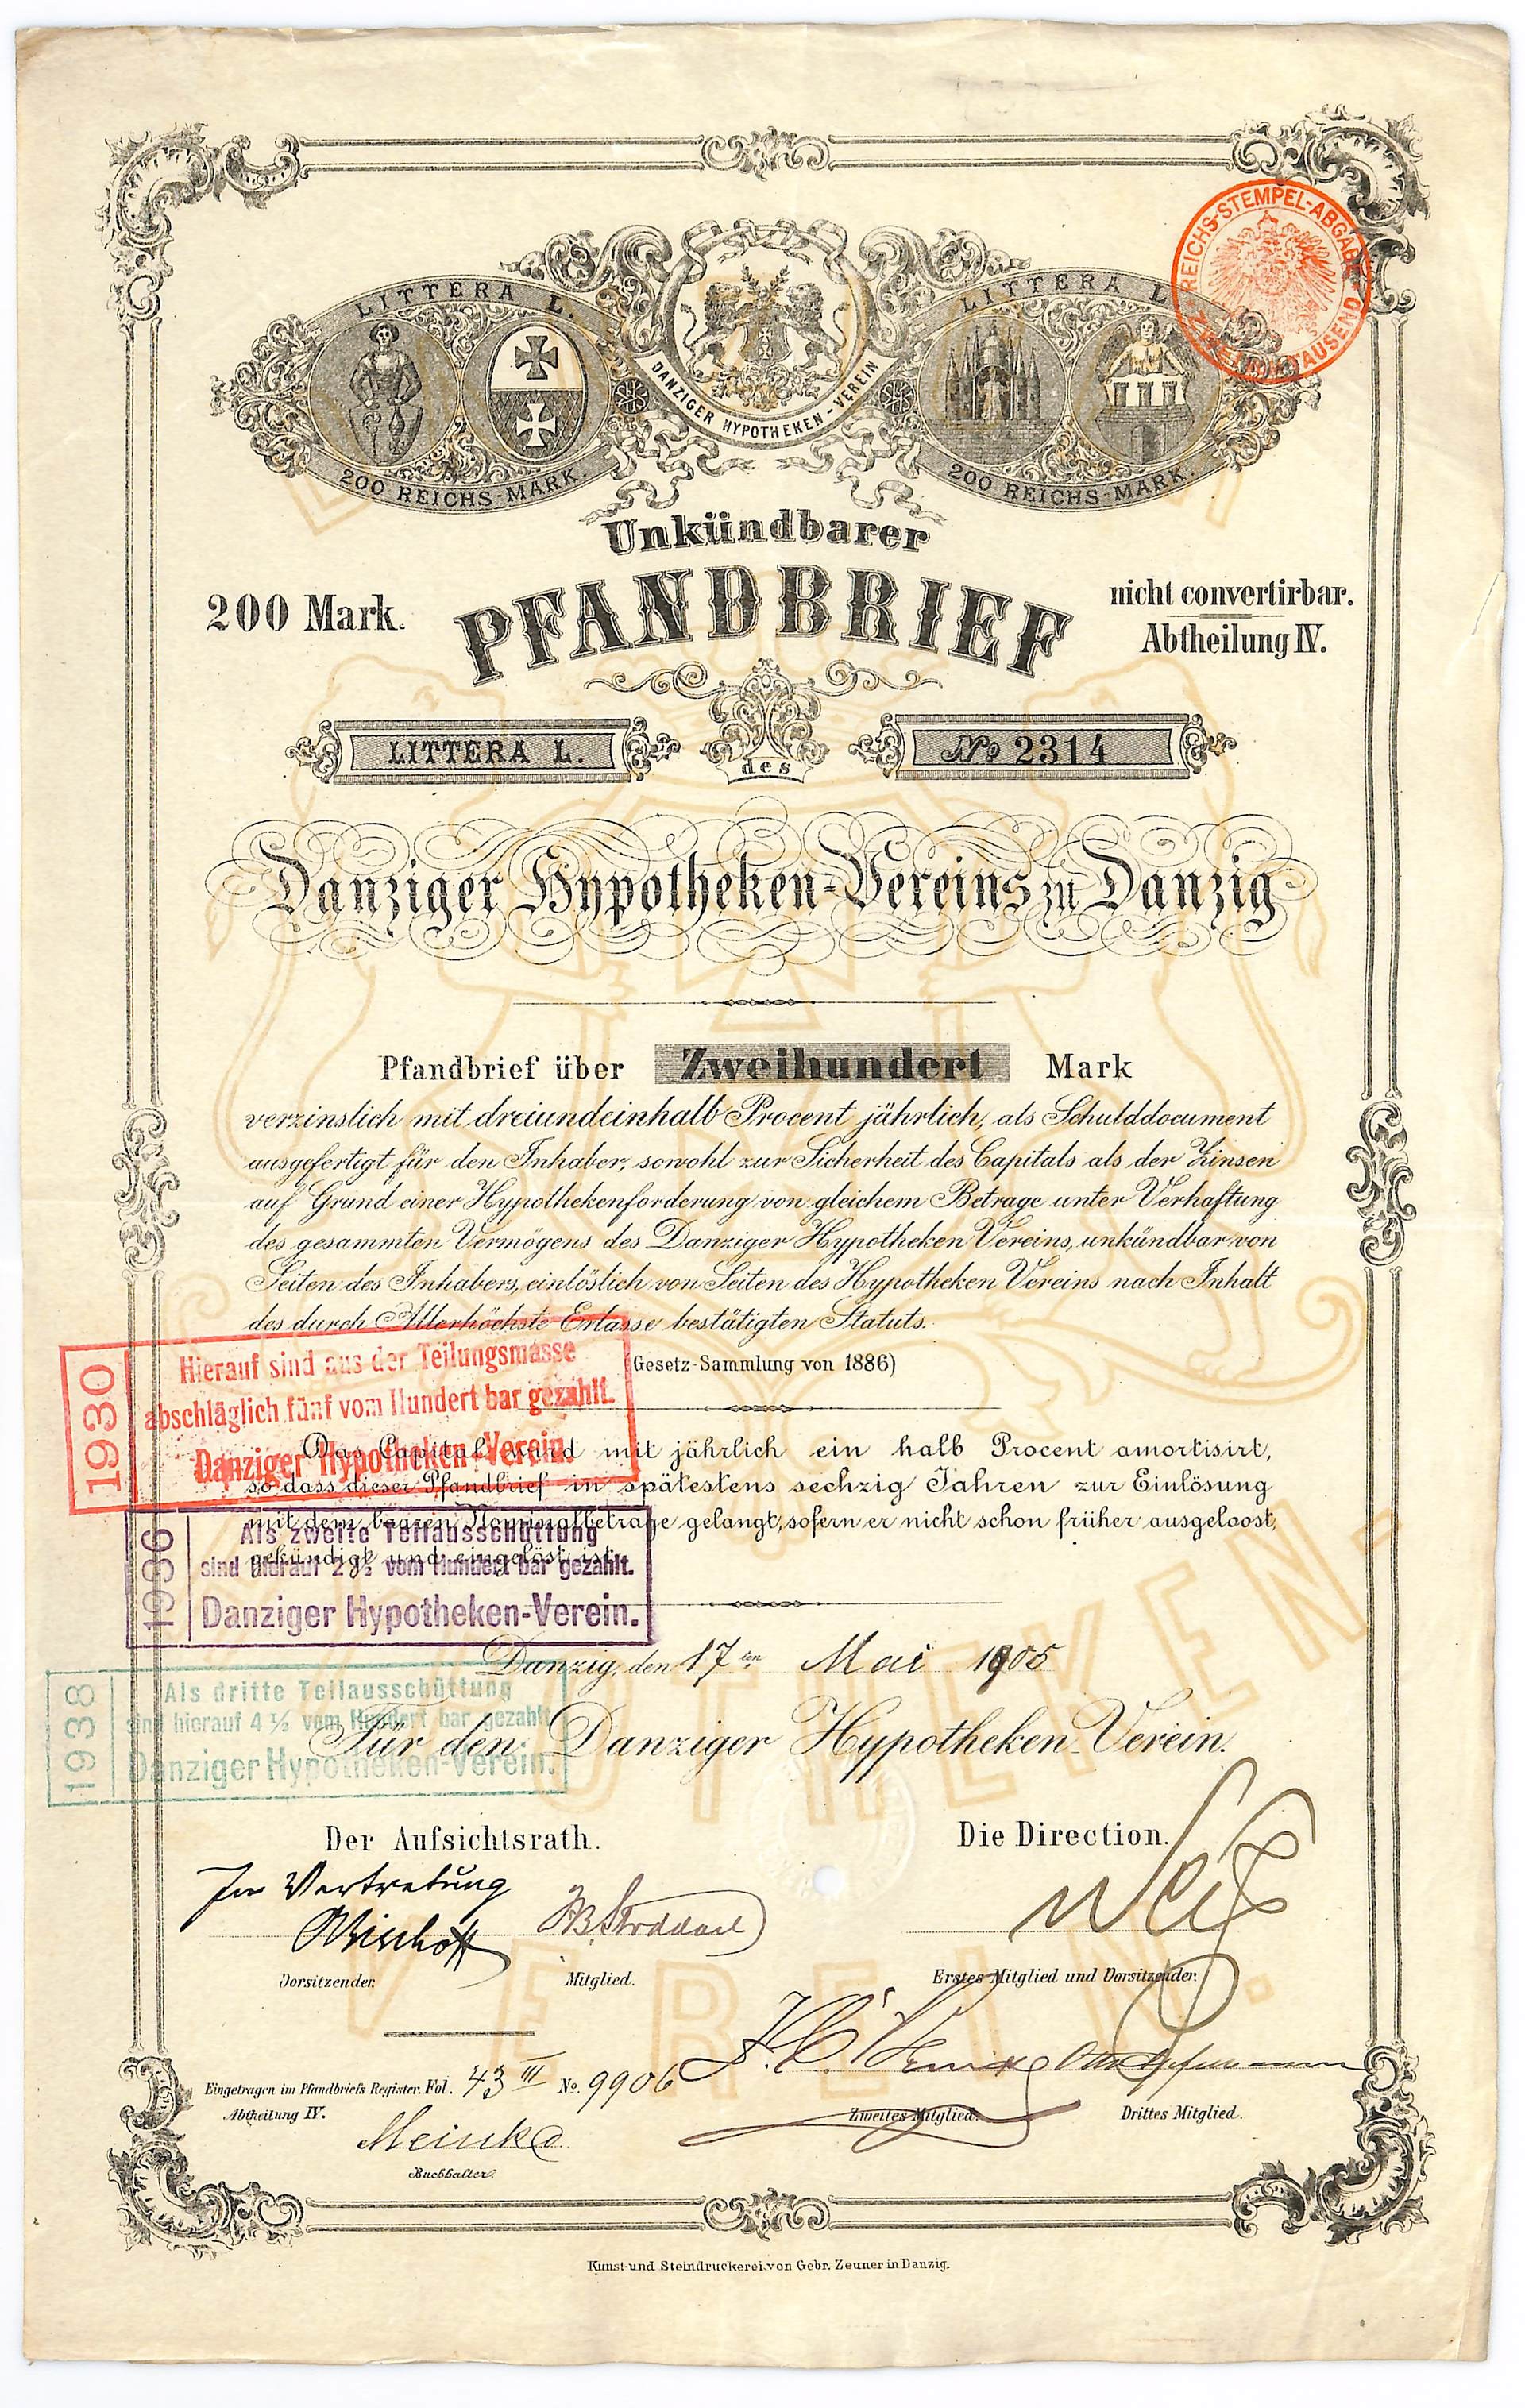 REICHS-STEMPEL-ABGABE
TAUSEND
LITTERA L.
200 REICHS-MARK.
DANZIGER HYPOTHEKEN-VEREIN
LITTERA L.
200 REICHS-MARK.
Unkündbarer
200 Mark.
PFANDBRIEF
nicht convertirbar.
Abtheilung IV.
LITTERA L.
des
No 2314
Danziger Hypotheken-Vereins zu Danzig
Pfandbrief über Zweihundert Mark
verzinslich mit dreiundeinhalb Procent jährlich, als Schulddocument
ausgefertigt für den Inhaber, sowohl zur Sicherheit des Capitals als der Zinsen
auf Grund einer Hypothekenforderung von gleichem Betrage unter Verhaftung
des gesammten Vermögens des Danziger Hypotheken Vereins, unkündbar von
Seiten des Inhabers, einlöslich von Seiten des Hypotheken Vereins nach Inhalt
des durch Allerhöchste Erlasse bestätigten Statuts.
(Gesetz-Sammlung von 1886)
1930
Hierauf sind aus der Teilungsmasse
abschläglich fünf vom Hundert bar gezahlt.
Danziger Hypotheken-Verein.
Das Capital wird mit jährlich ein halb Procent amortisirt,
so dass dieser Pfandbrief in spätestens sechzig Jahren zur Einlösung
mit dem baaren Nominalbetrage gelangt, sofern er nicht schon früher ausgeloost,
gekündigt und eingelöst ist.
1936
Als zweite Teilausschüttung
sind hierauf 2½ vom Hundert bar gezahlt.
Danziger Hypotheken-Verein.
Danzig, den 17ten Mai 1905
1938
Als dritte Teilausschüttung
sind hierauf 4½ vom Hundert bar gezahlt
Danziger Hypotheken-Verein.
Für den Danziger Hypotheken-Verein.
Der Aufsichtsrath.
Die Direction.
In Vertretung
Vorsitzender.
Mitglied.
Erstes Mitglied und Vorsitzender.
Eingetragen im Pfandbriefs Register. Fol. 43 III No. 9906
Abtheilung IV.
Zweites Mitglied.
Drittes Mitglied.
Buchhalter.
Kunst- und Steindruckerei von Gebr. Zeuner in Danzig.
HYPOTHEKEN-
VEREIN.